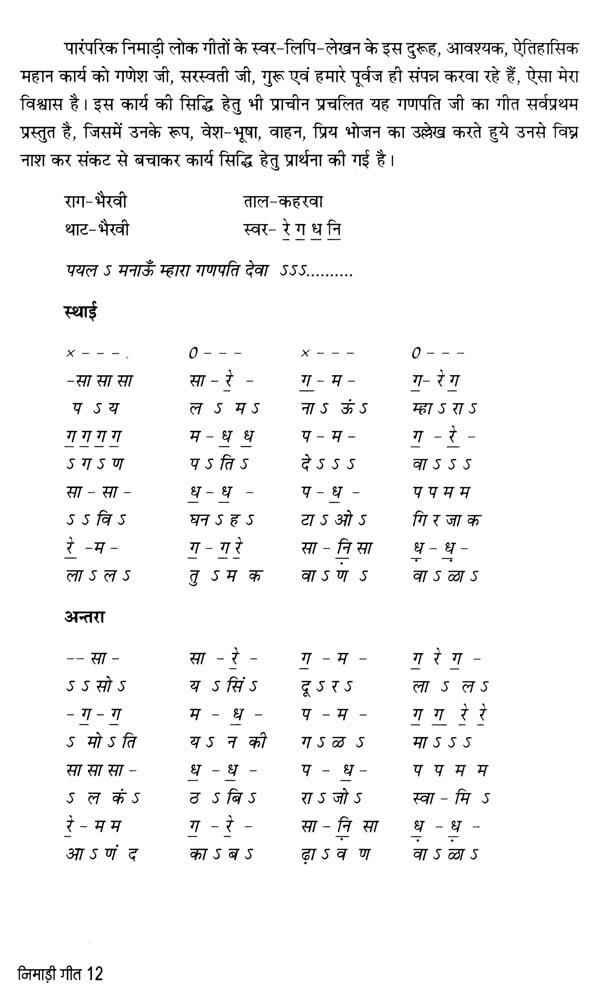 पारंपरिक निमाड़ी लोक गीतों के स्वर-लिपि-लेखन के इस दुरूह, आवश्यक, ऐतिहासिक
महान कार्य को गणेश जी, सरस्वती जी, गुरू एवं हमारे पूर्वज ही संपन्न करवा रहे हैं, ऐसा मेरा
विश्वास है। इस कार्य की सिद्धि हेतु भी प्राचीन प्रचलित यह गणपति जी का गीत सर्वप्रथम
प्रस्तुत है, जिसमें उनके रूप, वेश-भूषा, वाहन, प्रिय भोजन का उल्लेख करते हुये उनसे विघ्न
नाश कर संकट से बचाकर कार्य सिद्धि हेतु प्रार्थना की गई है।
राग-भैरवी ताल-कहरवा
थाट-भैरवी स्वर- रे॒ ग॒ ध॒ नि॒
पयल ऽ मनाऊँ म्हारा गणपति देवा ऽऽऽ..........
स्थाई
× - - - . 0 - - - × - - - 0 - - -
-सा सा सा सा - रे॒ - ग॒ - म - ग॒- रेग॒
प ऽ य ल ऽ मऽ नाऽ ऊंऽ म्हाऽ राऽ
ग॒ ग॒ ग॒ ग॒ म - ध॒ ध॒ प - म - ग॒ - रे॒ -
ऽ गऽ ण पऽ तिऽ देऽ ऽ ऽ वाऽ ऽ ऽ
सा - सा - ध॒ - ध॒ - प - ध॒ - प प म म
ऽ ऽ विऽ घनऽ हऽ टाऽ ओऽ गिर जाक
रे॒ -म - ग॒ - ग॒ रे॒ सा - नि़॒ सा ध़॒ - ध़॒ -
लाऽ लऽ तु ऽ म क वाऽ णं ऽ वाऽ ळाऽ
अन्तरा
-- सा - सा - रे॒ - ग॒ - म - ग॒ रे ग॒ -
ऽ ऽ सोऽ यऽ सिंऽ दूऽ रऽ ला ऽ लऽ
- ग॒ - ग॒ म - ध॒ - प - म - ग॒ ग॒ रे॒ रे॒
ऽ मोऽ ति यऽ न की गऽ ळऽ माऽ ऽ ऽ
सा सा सा - ध॒ - ध॒ - प - ध॒ - प प म म
ऽ ल कंऽ ठऽ बिऽ राऽ जोऽ स्वा - मि ऽ
रे॒ - म म ग॒ - रे॒ - सा - नि़॒ सा ध़॒ - ध़॒ -
आऽ णं द काऽ बऽ ढ़ाऽ व ण वाऽ ळाऽ
निमाड़ी गीत 12